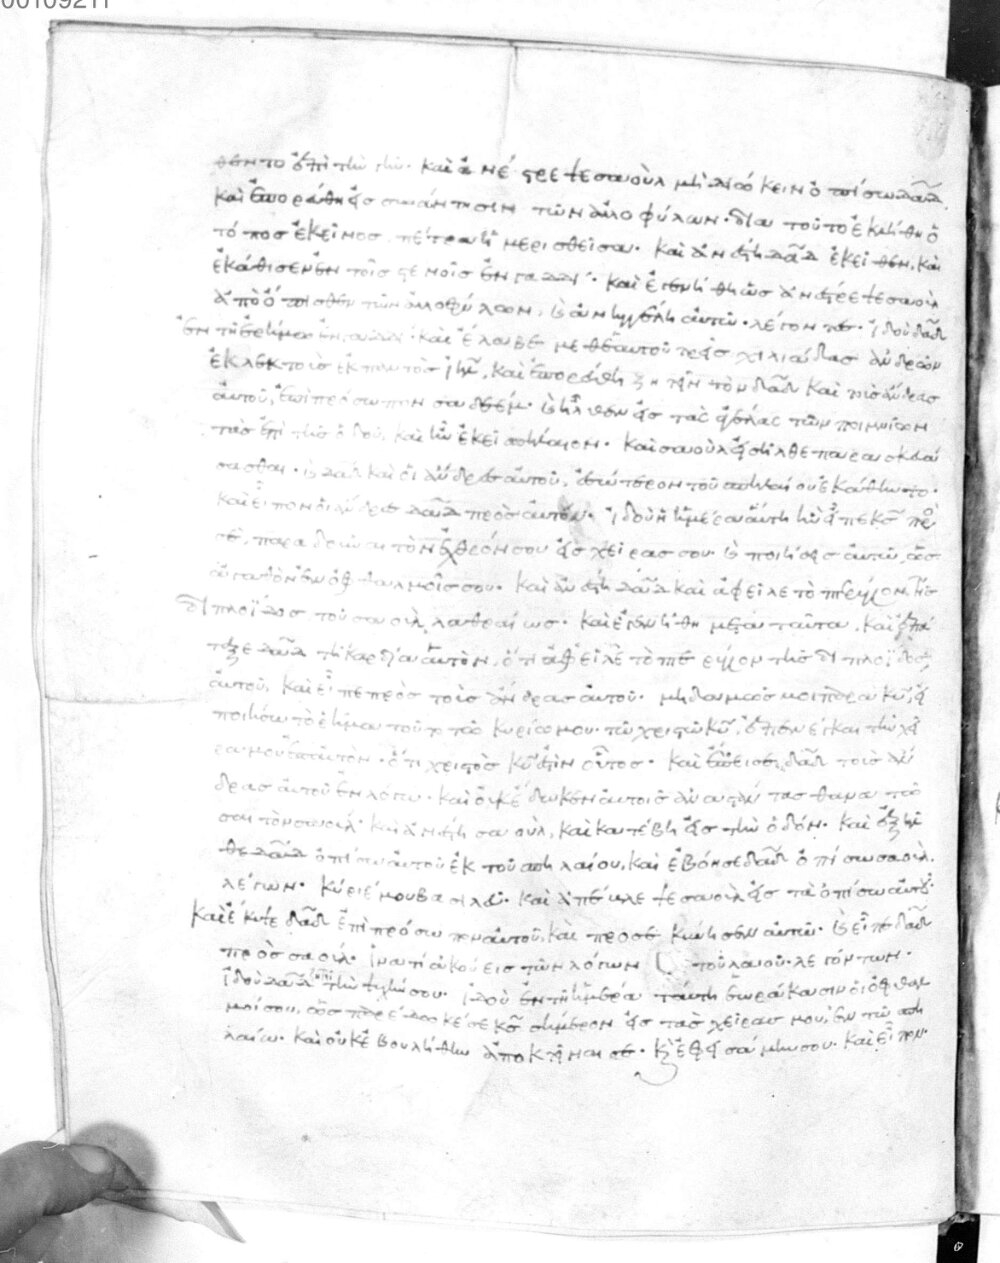 00109211
θεντο ἐπὶ τὴν γῆν. καὶ ἀνέστρεψε σαοὺλ μὴ διώκειν ὀπίσω δαδ
καὶ ἐπορεύθη εἰς συνάντησιν τῶν ἀλλοφύλων. διὰ τοῦτο ἐκλήθη ὁ
τόπος ἐκεῖνος πέτρα ἡ μερισθεῖσα. καὶ ἀνέστη δαδ ἐκεῖθεν, καὶ
ἐκάθισεν ἐν τοῖς στενοῖς ἐνγαδδί. καὶ ἐγενήθη ὡς ἀνέστρεψε σαοὺλ
ἀπὸ ὄπισθεν τῶν ἀλλοφύλων, καὶ ἀνηγγέλη αὐτῶ λέγοντες. ἰδοὺ δαδ
ἐν τῆ ἐρήμω ἐνγαδδί. καὶ ἔλαβε μεθ ἑαυτοῦ τρεῖς χιλιάδας ἀνδρῶν
ἐκλεκτοὺς ἐκ παντὸς ιηλ, καὶ ἐπορεύθη ζητεῖν τὸν δαδ καὶ τοὺς ἄνδρας
αὐτοῦ, ἐπὶ πρόσωπον σαδεέμ. καὶ ἦλθεν εἰς τὰς ἀγέλας τῶν ποιμνίων
τὰς ἐπὶ τῆς ὁδοῦ, καὶ ἦν ἐκεῖ σπήλαιον. καὶ σαοὺλ εἰσῆλθε παρασκευά
σασθαι. καὶ δαδ καὶ οἱ ἄνδρες αὐτοῦ, ἐσώτερον τοῦ σπηλαίου ἐκάθηντο.
καὶ εἶπον οἱ ἄνδρες δαδ πρὸς αὐτόν. ἰδοὺ ἡ ἡμέρα αὕτη ἣν εἶπε κς πρὸς
σέ, παραδοῦναι τὸν ἐχθρόν σου εἰς χεῖρας σου. καὶ ποιήσεις αὐτῶ, ὡς
ἀγαθὸν ἐν ὀφθαλμοῖς σου. καὶ ἀνέστη δαδ καὶ ἀφεῖλε τὸ πτερύγιον τῆς
διπλοΐδος τοῦ σαοὺλ λαθραίως. καὶ ἐγενήθη μετὰ ταῦτα, καὶ ἐπά
ταξε δαδ τὴ καρδία αὐτὸν, ὅτι ἀφεῖλε τὸ πτερύγιον τῆς διπλοΐδος
αὐτοῦ, καὶ εἶπε πρὸς τοὺς ἄνδρας αὐτοῦ. μηδαμῶς μοι παρὰ κυ, εἰ
ποιήσω τὸ ῥῆμα τοῦτο τῶ κυρίω μου τῶ χριστῶ κυ, ἐπενέγκαι τὴν χεῖ
ρα μου ἐπ αὐτὸν. ὅτι χριστὸς κυ ἐστὶν οὗτος. καὶ ἔπεισε δαδ τοὺς ἄν
δρας αὐτοῦ ἐν λόγω. καὶ οὐκ ἔδωκεν αὐτοῖς ἀναστάντας θανατῶ
σαι τὸν σαοὺλ. καὶ ἀνέστη σαοὺλ, καὶ κατέβη εἰς τὴν ὁδόν. καὶ ἐξῆλ
θε δαδ ὀπίσω αὐτοῦ ἐκ τοῦ σπηλαίου, καὶ ἐβόησε δαδ ὀπίσω σαοὺλ
λέγων. κύριέ μου βασιλεῦ. καὶ ἐπέβλεψε σαοὺλ εἰς τὰ ὀπίσω αὐτοῦ.
καὶ ἔκυψε δαδ ἐπὶ πρόσωπον αὐτοῦ, καὶ προσεκύνησεν αὐτῶ. καὶ εἶπε δαδ
πρὸς σαοὺλ. ἱνατί ἀκούεις τῶν λόγων τοῦ λαοῦ λεγόντων.
ἰδοὺ δαδ ζητεῖ τὴν ψυχήν σου. ἰδοὺ ἐν τῆ ἡμέρα ταύτη ἑωράκασιν οἱ ὀφθαλ
μοί σου, ὡς παρέδωκέ σε κς σήμερον εἰς τὰς χεῖρας μου, ἐν τῶ σπη
λαίω. καὶ οὐκ ἐβουλήθην ἀποκτεῖναι σέ. καὶ ἐφεισάμην σου. καὶ εἶπον